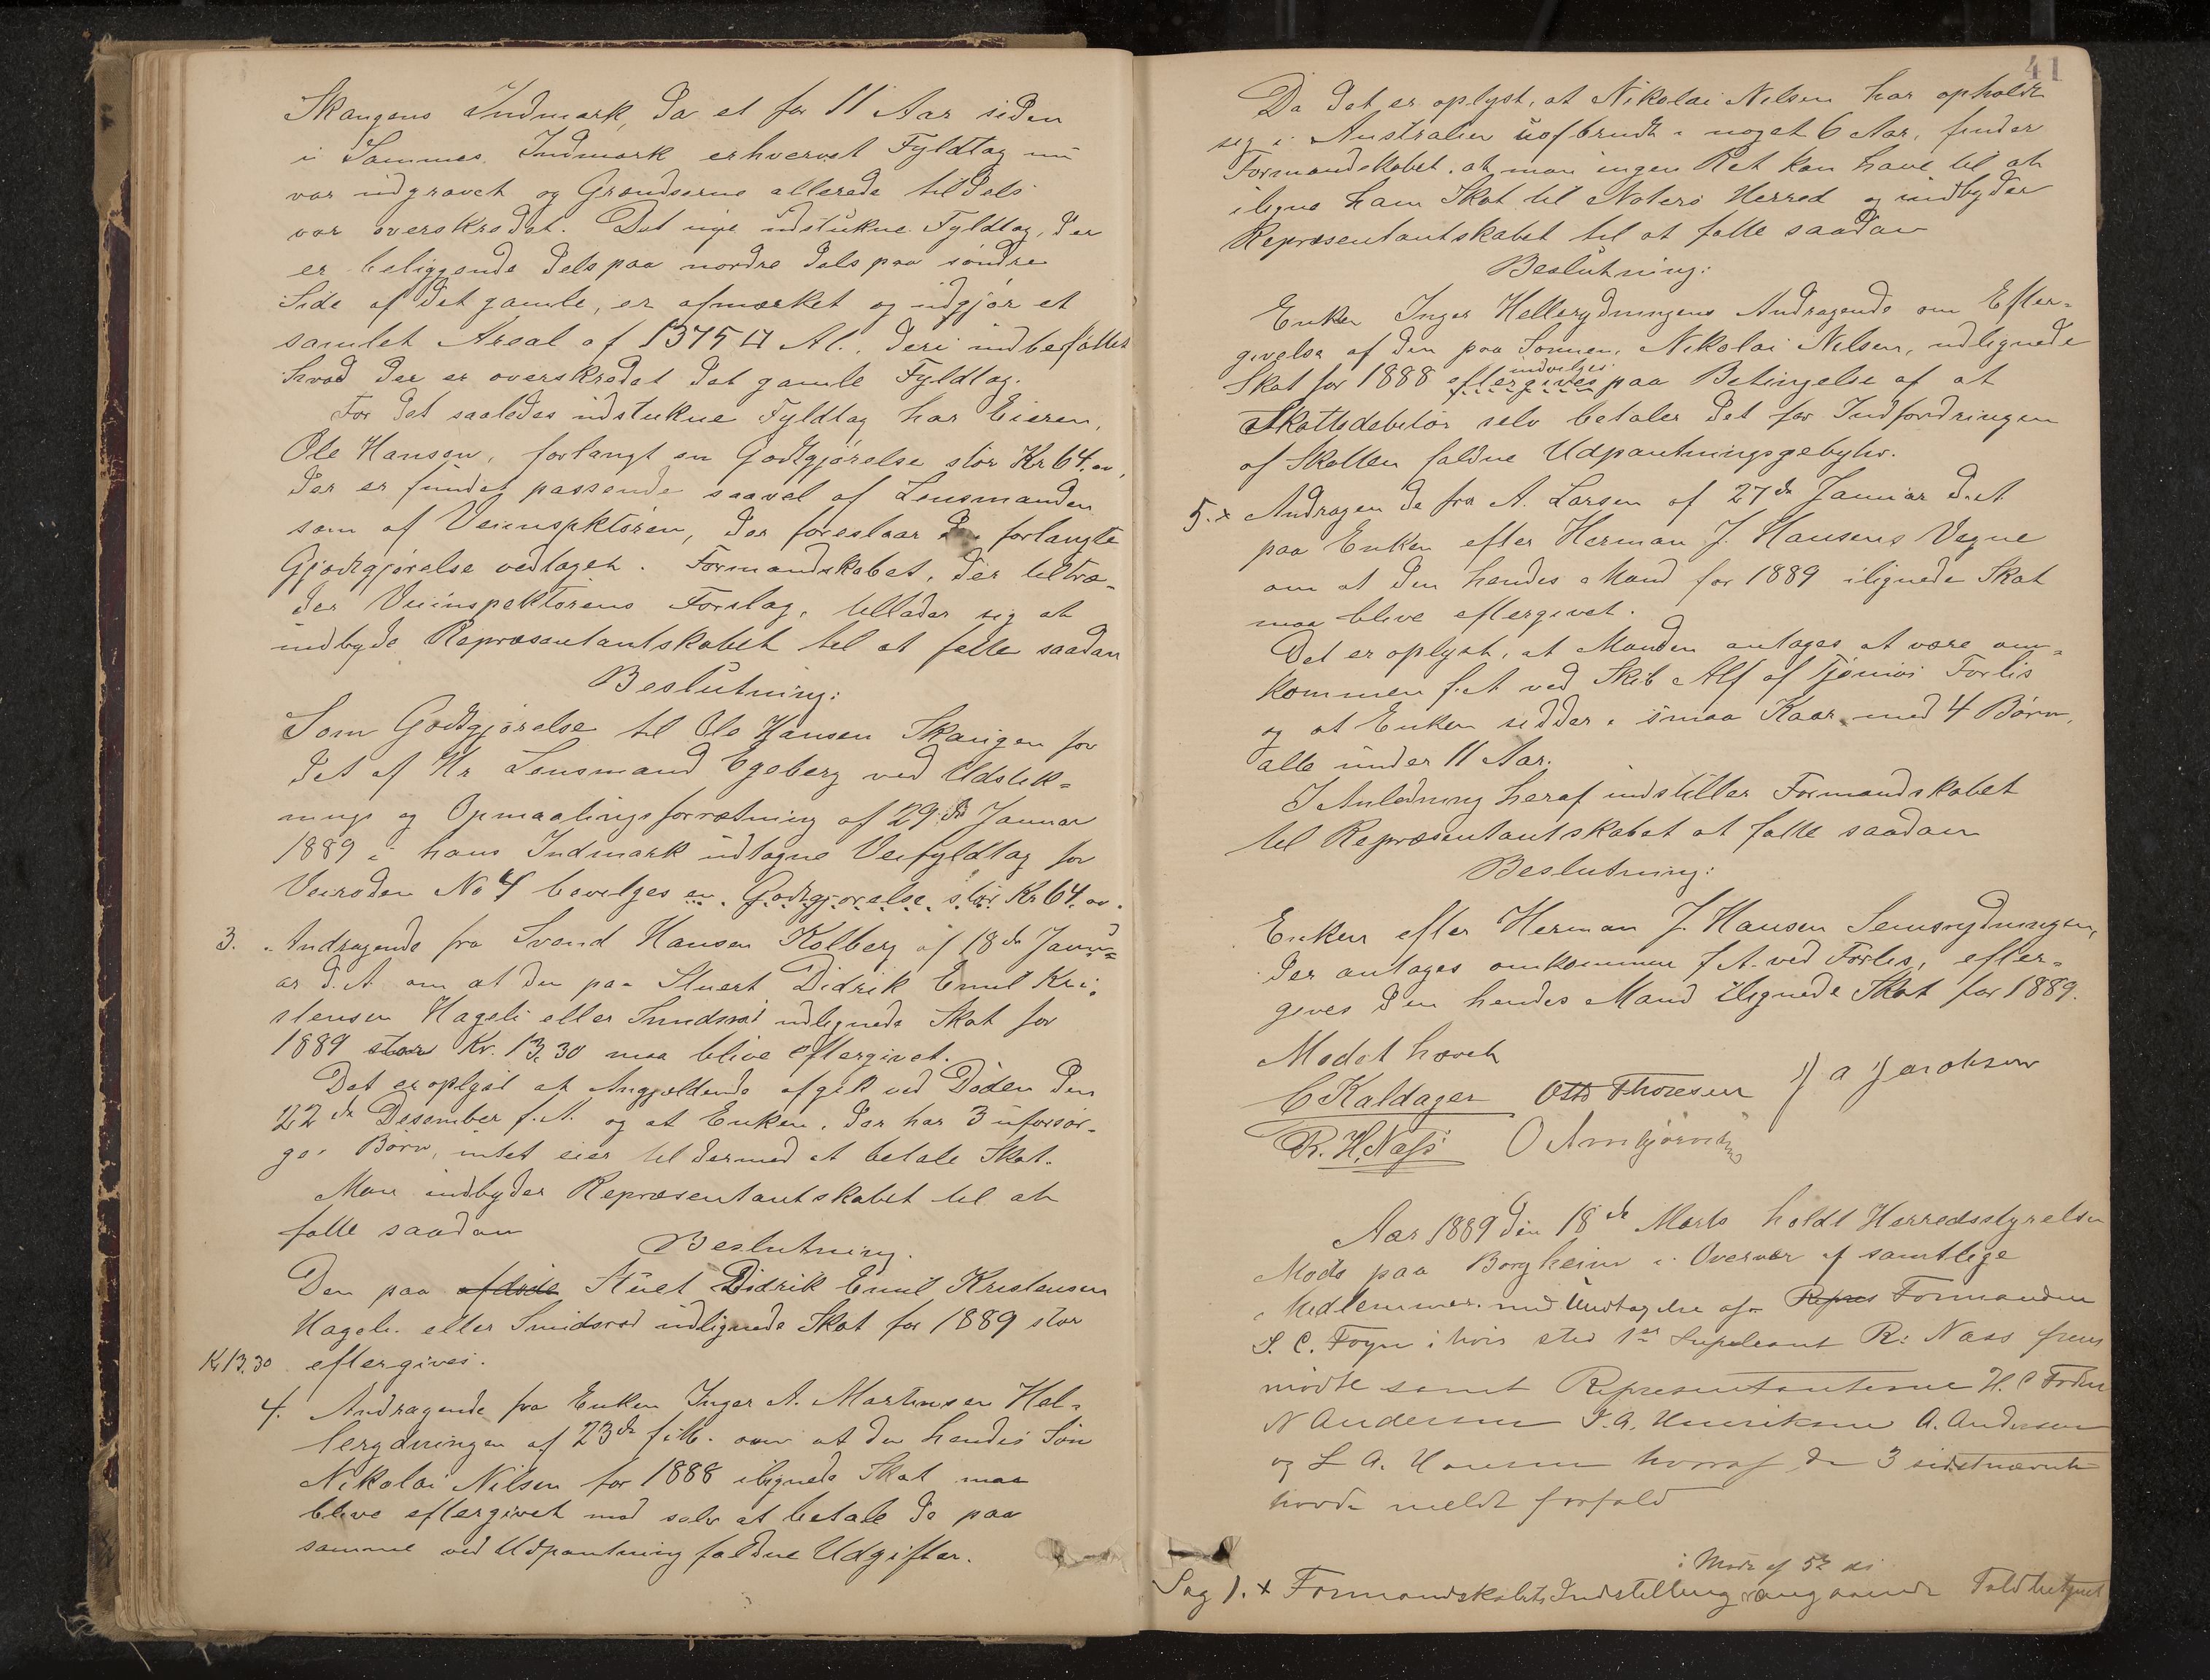 Skangens Indmark, da et for 11 Aar siden
i Sammes Indmark erhvervet Fyldtag nu
var udgravet og Grændserne allerede tildels
var overskredet. Det nye udstukne Fyldtag, der
er beliggende dels paa nordre dels paa söndre
Side af det gamle, er afmærket og udgjör et
samlet Areal af 1375 □ Al., deri indbefattet
hvad der er overskredet det gamle Fyldtag.
For det saaledes udstukne Fyldtag har Eieren,
Ole Hansen, forlangt en Godtgjörelse stor Kr 64.00,
der er fundet passende saavel af Lensmanden
som af Veiinspktören, der foreslaar den forlangte
Gjodtgjörelse vedtaget. Formandskabet, der tiltræ-
der Veiinspektörens Forslag, tillader sig at
indbyde Repræsentantskabet til at fatte saadan
Beslutning:
Som Godtgjörelse til Ole Hansen Skangen for
det af Hr Lensmand Egeberg ved Udstik-
nings og Opmaalingsforretning af 29de Januar
1889 i hans Indmark udtagne Veifyldtag for
Veiroden No 4 bevilges en Godtgjörelse stor Kr 64.00.
3. Andragende fra Svend Hansen Kolberg af 18de Janu-
ar d.A. om at den paa Stuert Didrik Emil Kri-
stensen Hageli eller Smidsröd udlignede Skat for
1889 stor Kr. 13.30 maa blive eftergivet.
Det er oplyst at Angjældende afgik ved Döden den
22de Desember f.A. og at Enken, der har 3 uforsör-
ge Börn, intet eier til dermed at betale Skat.
Man indbyder Repræsentantskabet til at
fatte saadan
Beslutning.
Den paa afdöde Stuet Didrik Emil Kristensen
Hageli eller Smidsröd udlignede Skat for 1889 stor
Kr 13.30 eftergives.
4. Andragende fra Enken Inger A. Martinsen Hel-
lerydningen af 23de f.M. om at den hendes Sön
Nikolai Nilsen for 1888 ilignede Skat maa
blive eftergivet mod selv at betale de paa
samme ved Udpantning faldne Udgifter.
41
Da det er oplyst, at Nikolai Nelsen har opholdt
seg i Australien uafbrudt i noget 6 Aar, finder
Formandskabet, at man ingen Ret kan have til at
iligne ham Skat til Nöterö Herred og indbyder
Repræsentantskabet til at fatte saadan
Beslutning:
Enken Inger Hellerydningens Andragende om Efter-
givelse af den paa Sönnen, Nikolai Nilsen, udlignede
indvilges
Skat for 1888 eftergives paa Betingelse af at
Skattedebitör selv betaler det for Indfordringen
af Skatten faldne Udpantningsgebyhr.
5. x Andragende fra A. Larsen af 27de Januar d.A.
paa Enken efter Herman J. Hansens Vegne
om at den hendes Mand for 1889 ilignede Skat
maa blive eftergivet.
Det er oplyst, at Manden antages at være om-
kommen f.A. ved Skib Alf af Tjömös Forlis
og at Enken sidder i smaa Kaar med 4 Börn,
alle under 11 Aar.
I Anledning heraf indstiller Formandskabet
til Repræsentantskabet at fatte saadan
Beslutning:
Enken efter Herman J. Hansen Semsrydningen,
der antages omkommen f.A. ved Forlis, efter-
gives den hendes Mand ilignede Skat for 1889.
Mödet hævet
C Kaldager Otto Thoresen J A Jacobsen
R. H. Næss O Arnbjörnsen
Aar 1889 den 18de Marts holdt Herredsstyrelsen
Möde paa Borgheim i Overvær af samtlige
Medlemmer med Undtagelse af Repres Formanden
S. C. Foyn i hvis sted 1ste Supleant R. Næss frem
mödte samt Representanterne H. C
N Andersen J. A. Henriksen A. Andersen
og L A. Hansen hvoraf de 3 sidstnævnte
havde meldt forfald
i Möde af 5te ds
Sag 1. x Formandskabets Indstilling angaaende